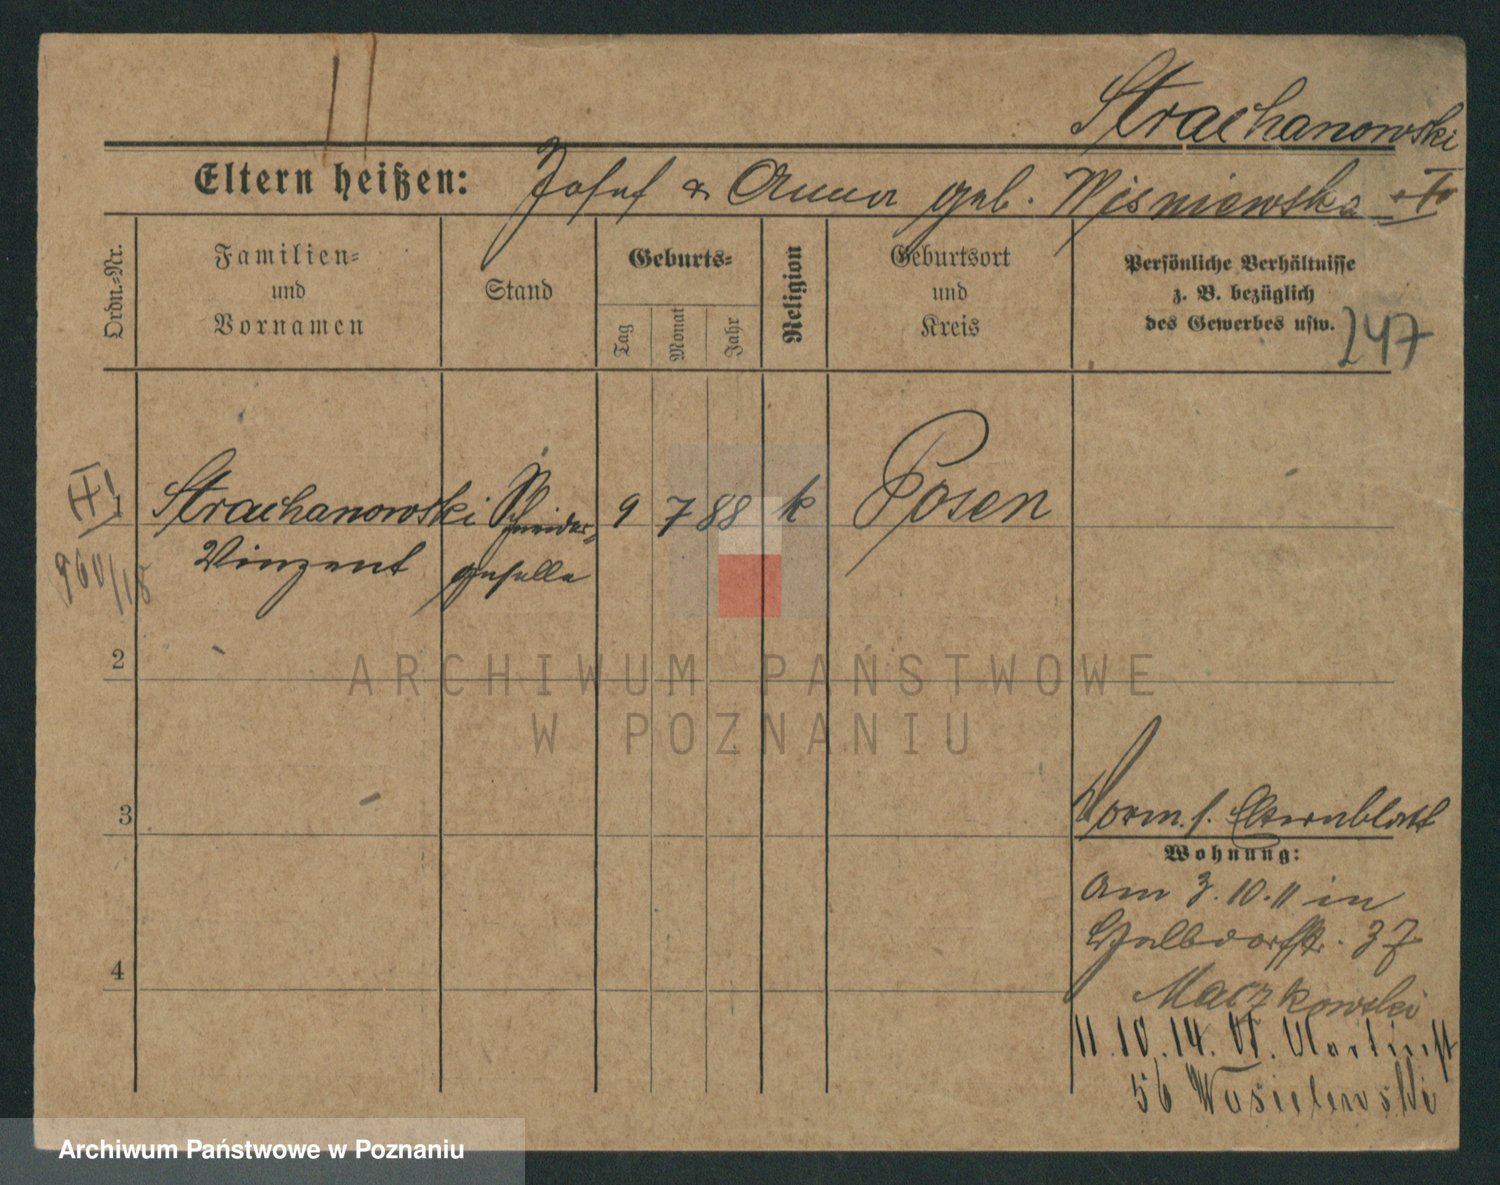 Strachanowski
Eltern heißen: Josef & Anna geb. Wisniewska
Ordn.=Nr.
Familien=
und
Vornamen
Stand
Geburts=
Tag
Monat
Jahr
Religion
Geburtsort
und
Kreis
Persönliche Verhältnisse
z. B. bezüglich
des Gewerbes usw.
247
1 Strachanowski Schneider= 9 7 88 k Posen
Vinzent geselle
960/18
2
ARCHIWUM PAŃSTWOWE
W POZNANIU
3
Vorm. s. Elternblatt
Wohnung:
am 3.10.11 in
Halbdorfstr. 37
Maczkowski
4
11.10.14. St. Martinst
56 Wasielewski
Archiwum Państwowe w Poznaniu